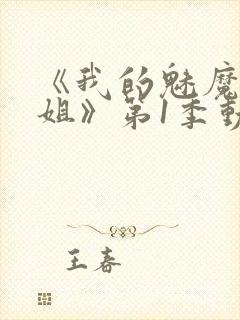 《我的魅魔
姐》第1季動
王春